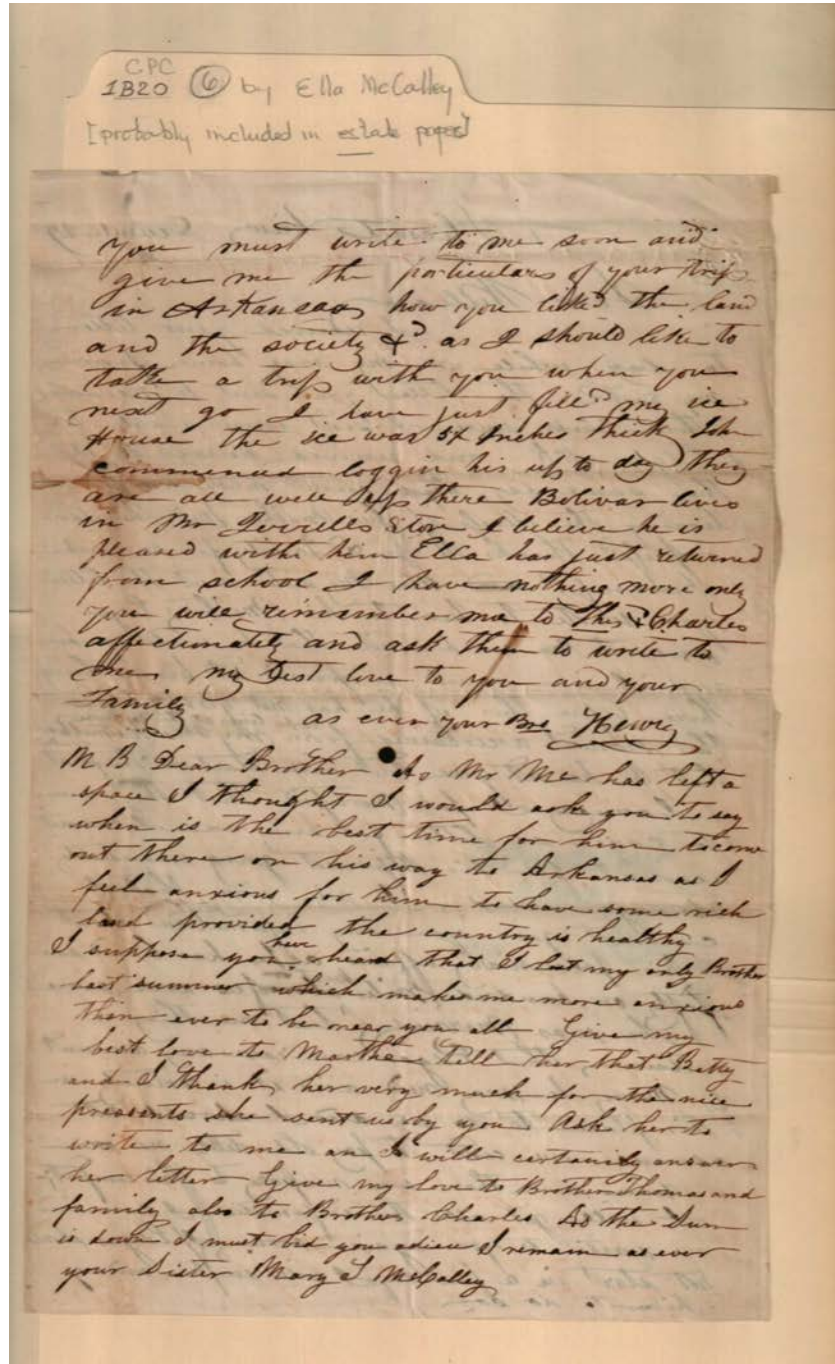 CPC
1B20 (6) by Ella McCalley
[probably included in estate papers]
you must write to me soon and
give me the particulars of your trip
in Arkansas how you liked the land
and the society &c. as I should like to
take a trip with you when you
next go I have just fill.d my ice
House the ice was 5½ Inches thick John
commenced loggin his up to day they
are all well up there Bolivar lives
in Mr Store I believe he is
pleased with him Ella has just returned
from school I have nothing more only
you will remember me to Thos & Charles
affectionately and ask them to write to
me my best love to you and your
Family
as ever your Bro Henry
Dear Brother As Mr Mc has left a
space I thought I would ask you to say
when is the best time for him to come
out there on his way to Arkansas as I
feel anxious for him to have some rich
land provided the country is healthy
I suppose you have heard that I lost my only Brother
last summer which makes me more anxious
than ever to be near you all Give my
best love to Martha Tell her that Betty
and I thank her very much for the nice
presents she sent us by you Ask her to
write to me an I will certainly answer
her letter Give my love to Brother Thomas and
family also to Brother Charles As the Sun
is down I must bid you adieu I remain as ever
your Sister Mary McCalley